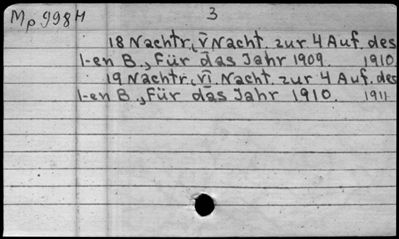 Mp 998 H
3
18 Nachtr., V Nacht. zur 4 Auf. des
1-en B., Für das Jahr 1909. 1910
19 Nachtr., VI. Nacht. zur 4 Auf. des
1-en B., Für das Jahr 1910. 1911